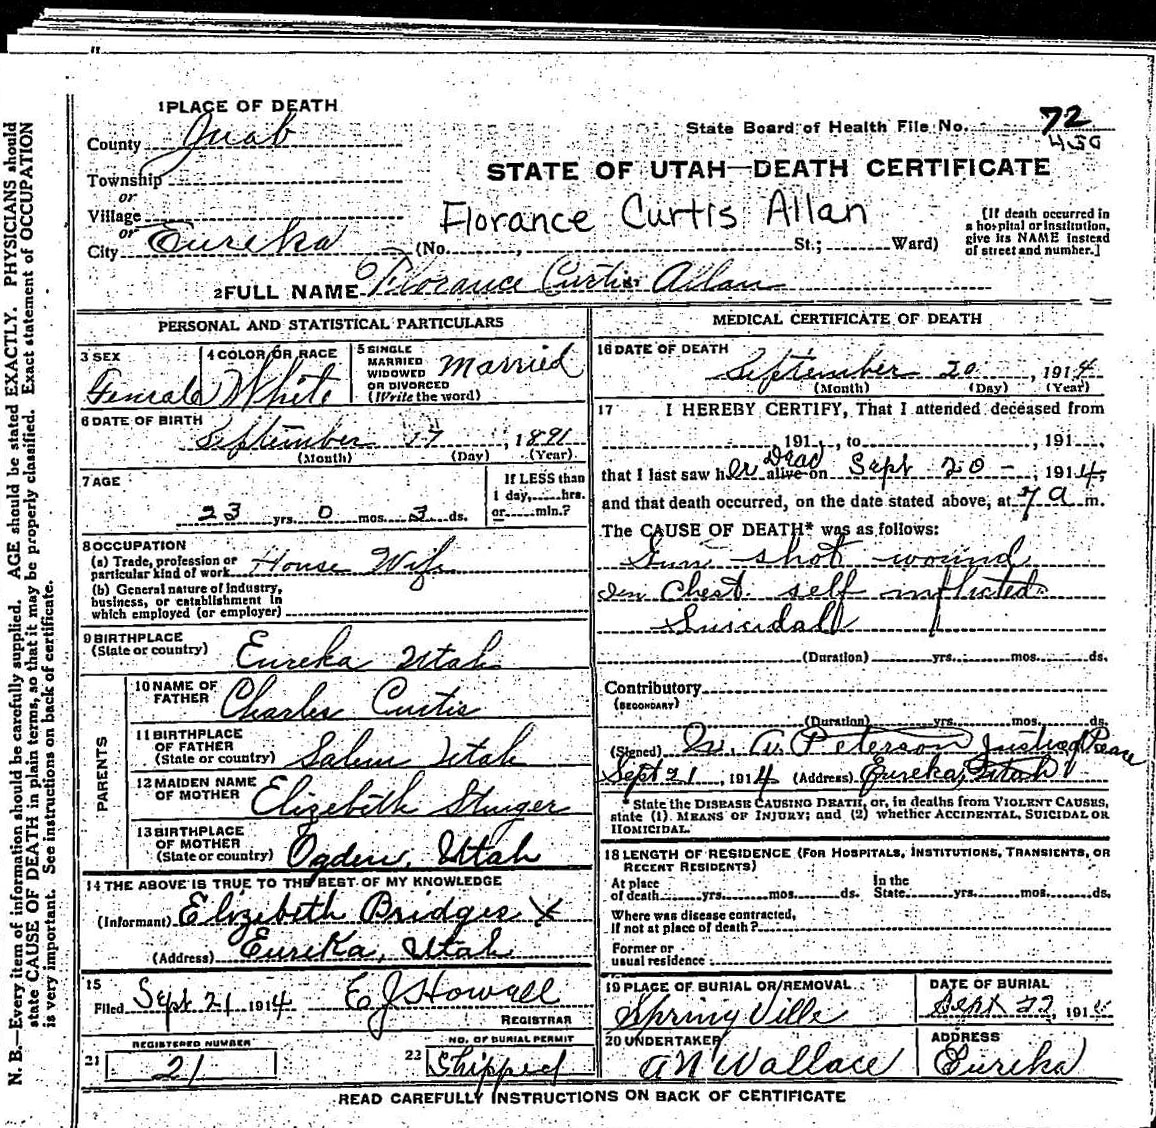 1 PLACE OF DEATH
County Juab
Township
or
Village
or
City Eureka (No. St.; Ward)
State Board of Health File No. 72
450
STATE OF UTAH—DEATH CERTIFICATE
Florance Curtis Allan
[If death occurred in
a hospital or institution,
give its NAME instead
of street and number.]
2 FULL NAME Florance Curtis Allan
PERSONAL AND STATISTICAL PARTICULARS
3 SEX
Female
4 COLOR OR RACE
White
5 SINGLE
MARRIED
WIDOWED
OR DIVORCED
(Write the word)
Married
6 DATE OF BIRTH
September 17, 1891
(Month) (Day) (Year)
7 AGE
23 yrs. 0 mos. 3 ds.
If LESS than
1 day, hrs.
or min.?
8 OCCUPATION
(a) Trade, profession or
particular kind of work House Wife
(b) General nature of industry,
business, or establishment in
which employed (or employer)
9 BIRTHPLACE
(State or country)
Eureka Utah
PARENTS
10 NAME OF
FATHER
Charles Curtis
11 BIRTHPLACE
OF FATHER
(State or country)
Salem Utah
12 MAIDEN NAME
OF MOTHER
Elizebeth
13 BIRTHPLACE
OF MOTHER
(State or country)
Ogden, Utah
14 THE ABOVE IS TRUE TO THE BEST OF MY KNOWLEDGE
(Informant) Elizebeth Bridges X
(Address) Eureka, Utah
15
Filed Sept 21 1914 E J Howell
REGISTRAR
21 REGISTERED NUMBER
21
22 NO. OF BURIAL PERMIT
Shipped
MEDICAL CERTIFICATE OF DEATH
16 DATE OF DEATH
September 20, 1914
(Month) (Day) (Year)
17 I HEREBY CERTIFY, That I attended deceased from
, 191 , to , 191 ,
that I last saw her Dead alive on Sept 20 - , 1914,
and that death occurred, on the date stated above, at 7 a m.
The CAUSE OF DEATH* was as follows:
Gun shot wound
in Chest self inflicted
Suicidall
(Duration) yrs. mos. ds.
Contributory
(SECONDARY)
(Duration) yrs. mos. ds.
(Signed) Peterson Justice of Peace
Sept 21, 1914 (Address) Eureka, Utah
* State the DISEASE CAUSING DEATH, or, in deaths from VIOLENT CAUSES,
state (1) MEANS OF INJURY; and (2) whether ACCIDENTAL, SUICIDAL OR
HOMICIDAL.
18 LENGTH OF RESIDENCE (FOR HOSPITALS, INSTITUTIONS, TRANSIENTS, OR
RECENT RESIDENTS)
At place
of death yrs. mos. ds.
In the
State yrs. mos. ds.
Where was disease contracted,
if not at place of death?
Former or
usual residence
19 PLACE OF BURIAL OR REMOVAL
Spring Ville
DATE OF BURIAL
Sept 22, 191
20 UNDERTAKER
A N Wallace
ADDRESS
Eureka
READ CAREFULLY INSTRUCTIONS ON BACK OF CERTIFICATE
N. B.—Every item of information should be carefully supplied. AGE should be stated EXACTLY. PHYSICIANS should
state CAUSE OF DEATH in plain terms, so that it may be properly classified. Exact statement of OCCUPATION
is very important. See instructions on back of certificate.